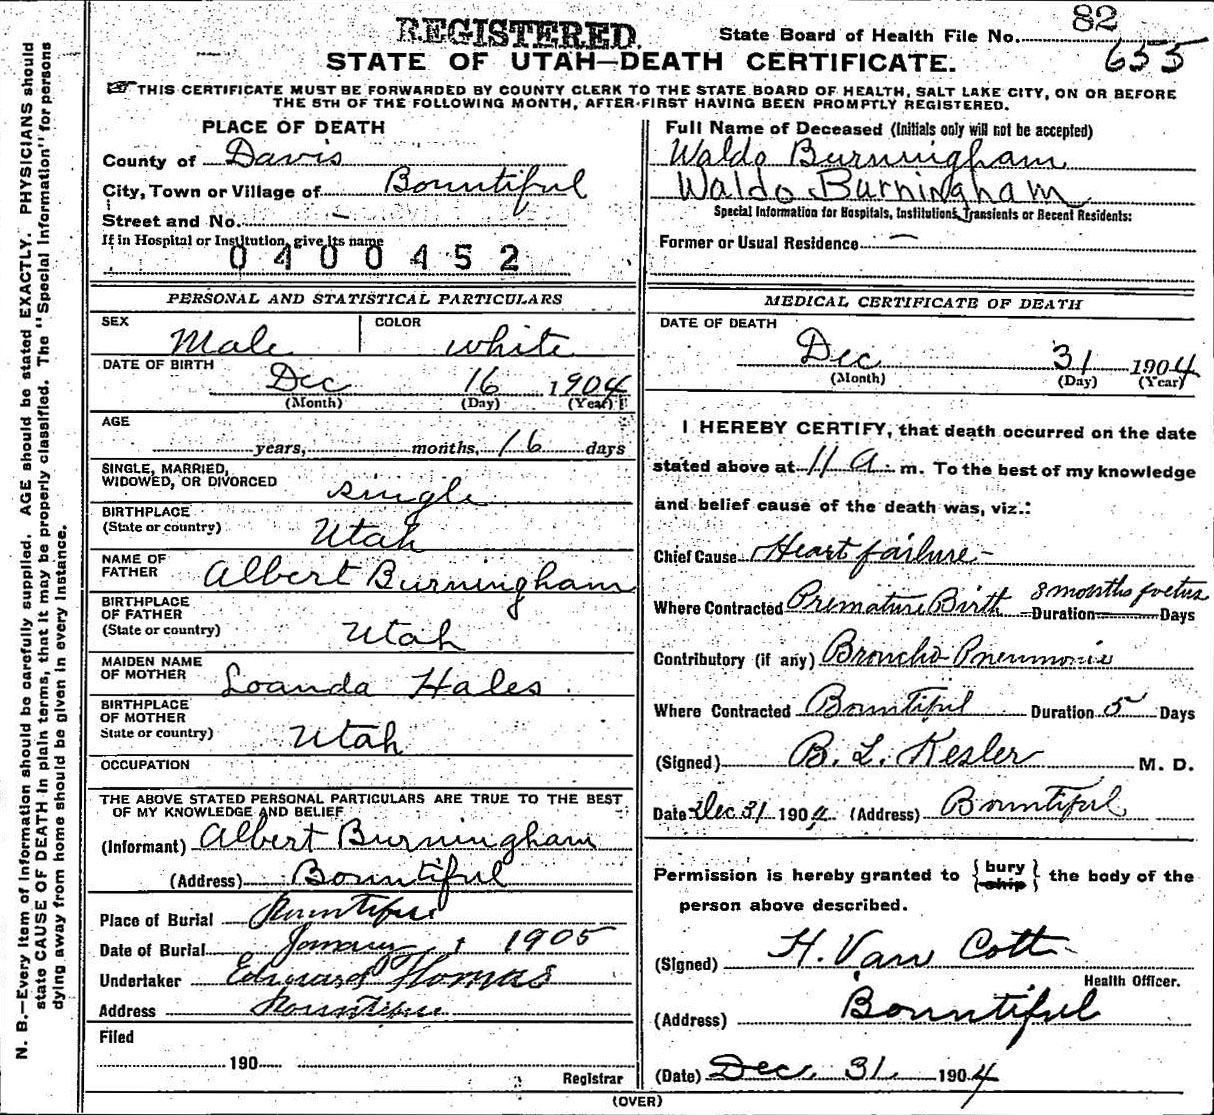 REGISTERED.
State Board of Health File No. 82
655
STATE OF UTAH—DEATH CERTIFICATE.
☞THIS CERTIFICATE MUST BE FORWARDED BY COUNTY CLERK TO THE STATE BOARD OF HEALTH, SALT LAKE CITY, ON OR BEFORE
THE 5TH OF THE FOLLOWING MONTH, AFTER FIRST HAVING BEEN PROMPTLY REGISTERED.
PLACE OF DEATH
County of Davis
City, Town or Village of Bountiful
Street and No. —
If in Hospital or Institution, give its name
0400452
Full Name of Deceased (Initials only will not be accepted)
Waldo Burningham
Waldo Burningham
Special Information for Hospitals, Institutions, Transients or Recent Residents:
Former or Usual Residence —
PERSONAL AND STATISTICAL PARTICULARS
SEX Male COLOR white
DATE OF BIRTH
Dec 16 1904
(Month) (Day) (Year)
AGE
years, months, 16 days
SINGLE, MARRIED,
WIDOWED, OR DIVORCED single
BIRTHPLACE
(State or country) Utah
NAME OF
FATHER Albert Burningham
BIRTHPLACE
OF FATHER
(State or country) Utah
MAIDEN NAME
OF MOTHER Loanda Hales
BIRTHPLACE
OF MOTHER
State or country) Utah
OCCUPATION
THE ABOVE STATED PERSONAL PARTICULARS ARE TRUE TO THE BEST
OF MY KNOWLEDGE AND BELIEF
(Informant) Albert Burningham
(Address) Bountiful
Place of Burial Bountiful
Date of Burial January 1 1905
Undertaker Edward Thomas
Address Bountiful
Filed
190
Registrar
MEDICAL CERTIFICATE OF DEATH
DATE OF DEATH
Dec 31 1904
(Month) (Day) (Year)
I HEREBY CERTIFY, that death occurred on the date
stated above at 11 a. m. To the best of my knowledge
and belief cause of the death was, viz.:
Chief Cause Heart failure—
Where Contracted Premature Birth 8 months foetus Duration Days
Contributory (if any) Broncho Pneumonia
Where Contracted Bountiful Duration 5 Days
(Signed) B. L. Kesler M. D.
Date Dec 31 1904 (Address) Bountiful
Permission is hereby granted to {bury ship} the body of the
person above described.
(Signed) H. Van Cott
Health Officer.
(Address) Bountiful
(Date) Dec. 31 1904
(OVER)
N. B.—Every item of information should be carefully supplied. AGE should be stated EXACTLY. PHYSICIANS should
state CAUSE OF DEATH in plain terms, that it may be properly classified. The "Special Information" for persons
dying away from home should be given in every instance.